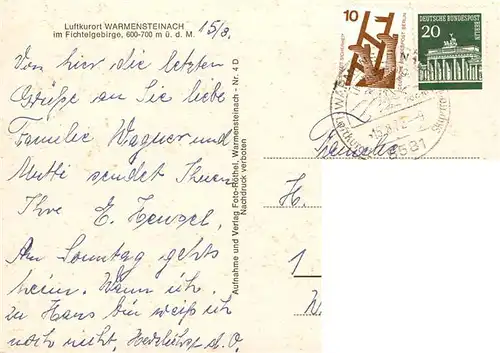 Luftkurort WARMENSTEINACH
im Fichtelgebirge, 600-700 m ü. d. M.
15/3.
Von hier die letzten
Grüße an Sie liebe
Familie Wagner und
Mutti sendet Ihnen
Ihre E. Hensel,
Am Sonntag gehts
heim. Wann ich
zu Hans bin weiß ich
noch nicht. Herzlichst d. O.
Aufnahme und Verlag Foto-Röthel, Warmensteinach - Nr. 4 D
Nachdruck verboten
10
DEUTSCHE BUNDESPOST BERLIN
20
DEUTSCHE BUNDESPOST
BERLIN
Luftkurort
8581
H.
1